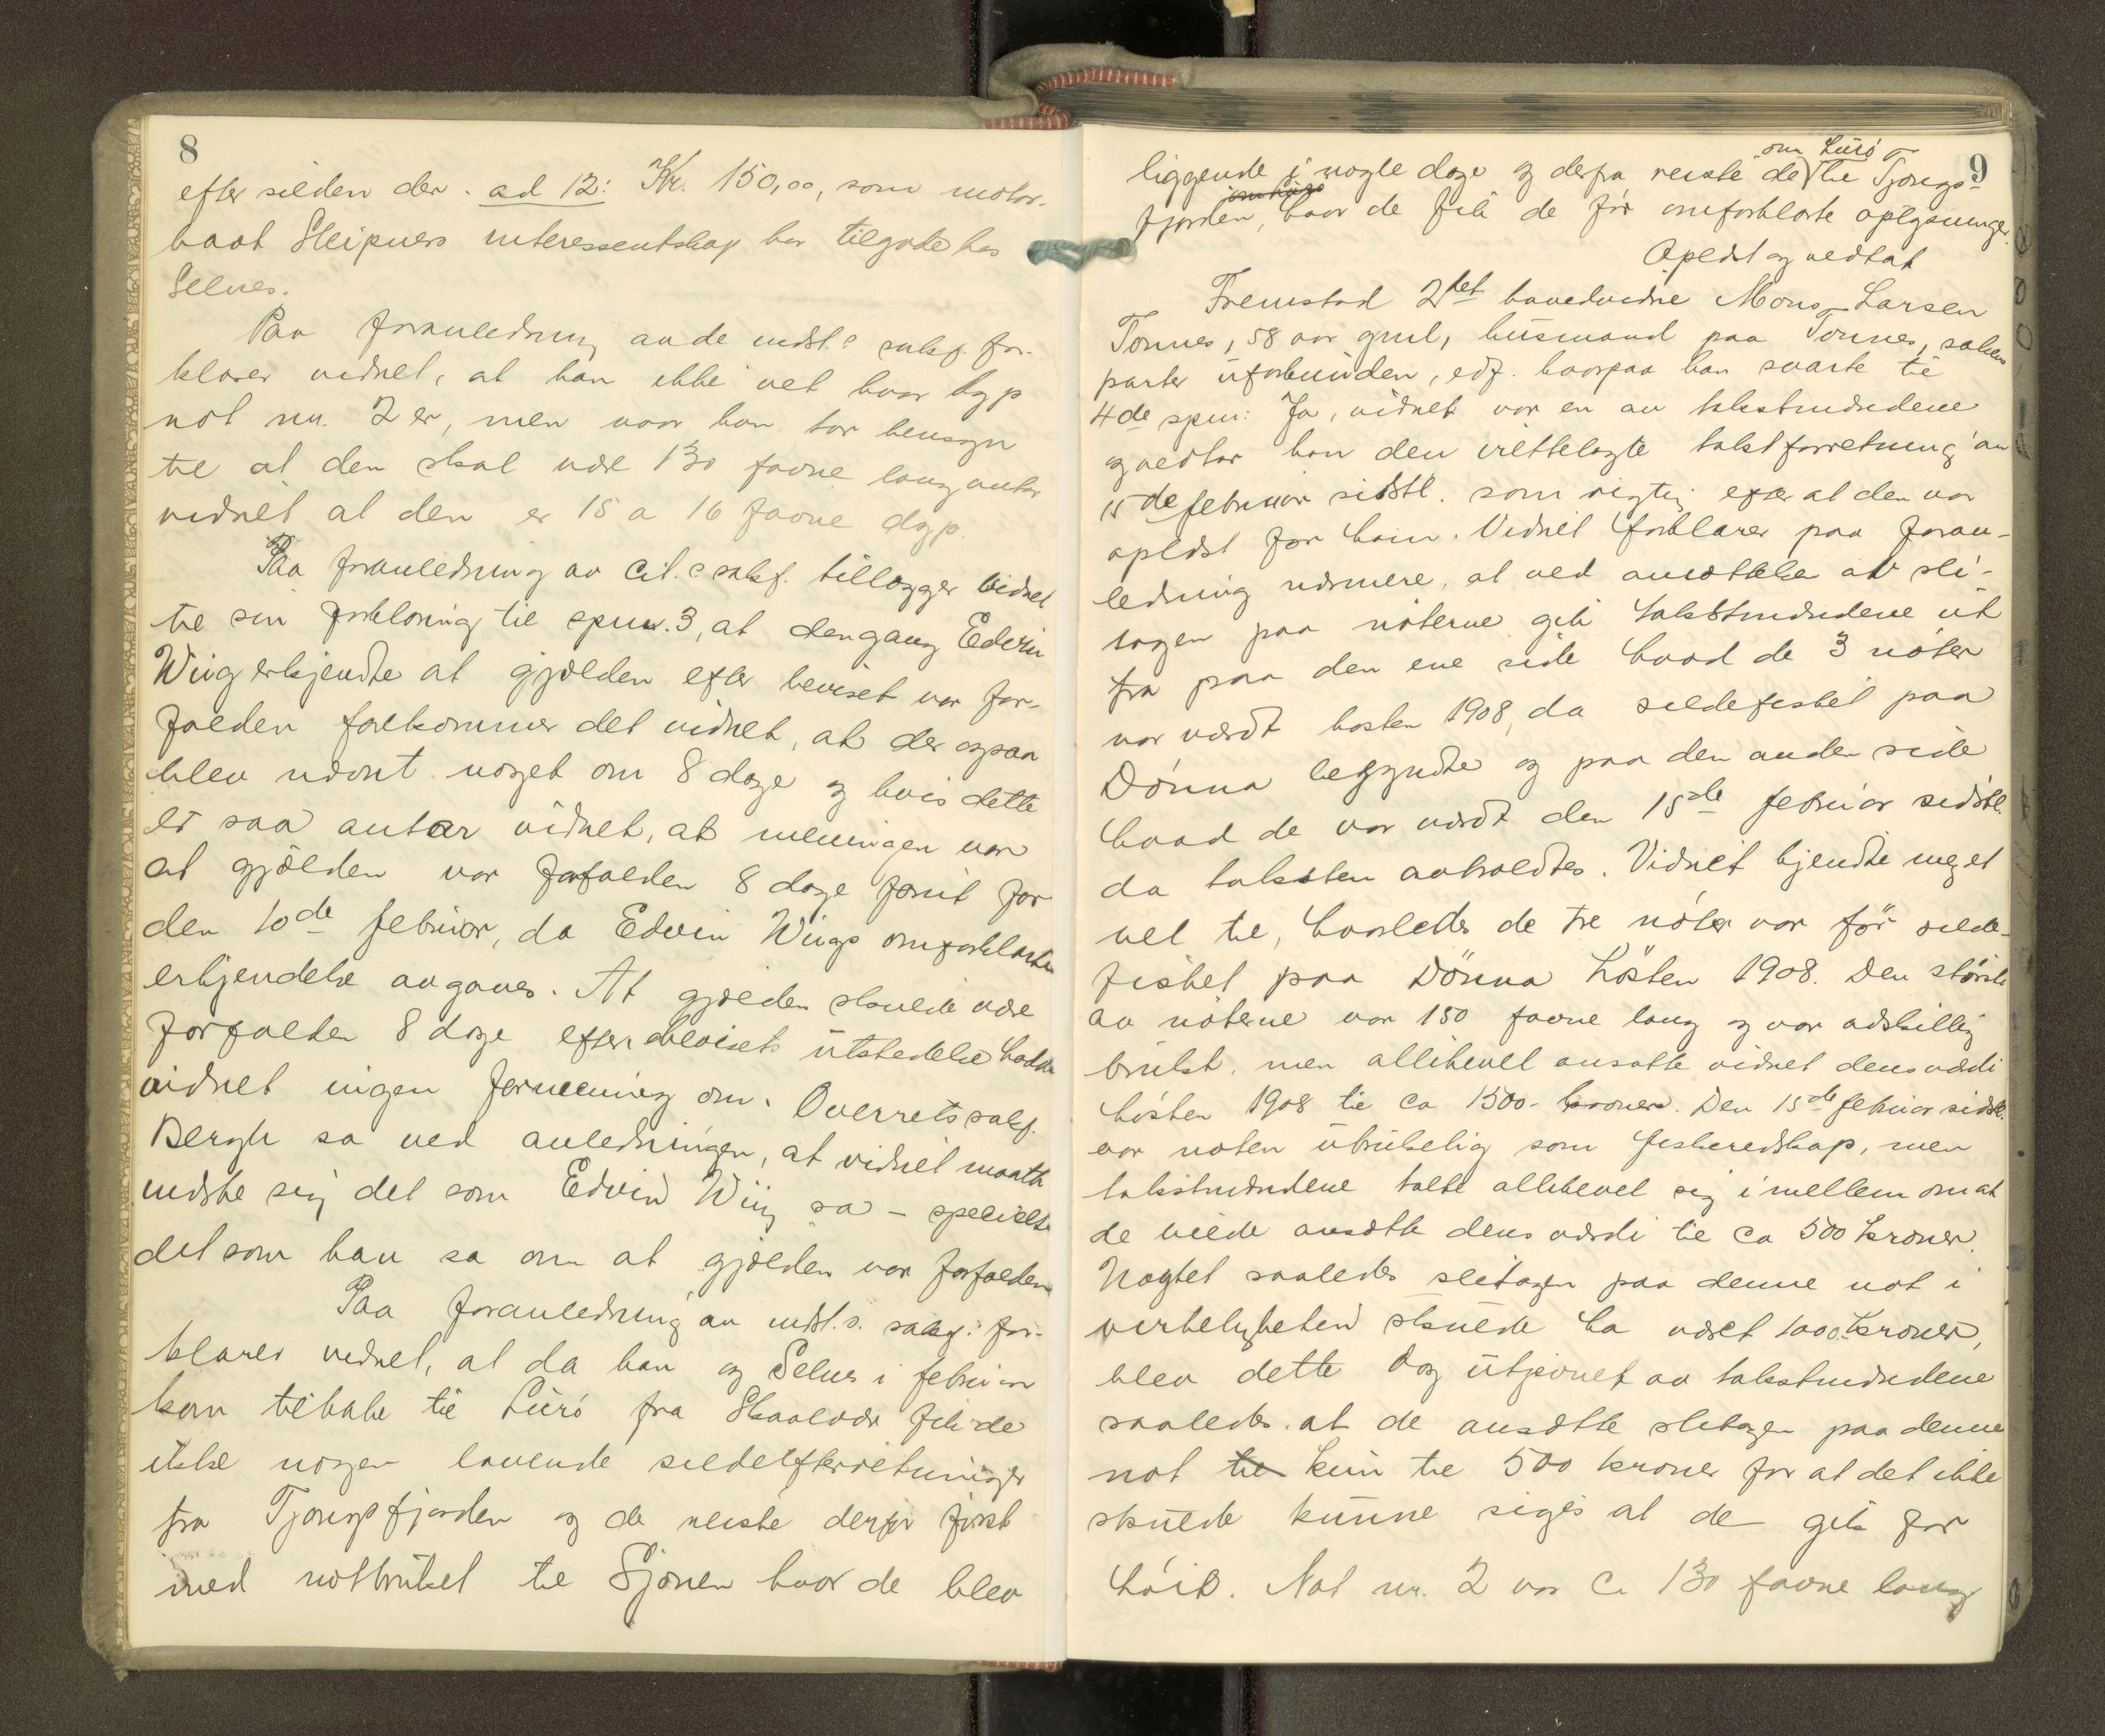 8
efter silden der. ad 12: Kr. 150,00, som motor-
baat Sleipners interessentskap har tilgode hos
Selnes.
Paa foranledning av de indst.s sakf. for-
klarer vidnet, at han ikke vet hvor dyp
not nr. 2 er, men naar han tar hensyn
til at den skal være 130 favne lang antar
vidnet at den er 15 a 16 favne dyp.
Paa foranledning av cit.s sakf. tillægger vidnet
til sin forklaring til spm. 3, at dengang Edvin
Wiig erkjendte at gjælden efter beviset var for-
falden forekommer det vidnet, at der ogsaa
blev nævnt noget om 8 dage og hvis dette
er saa antar vidnet, at meningen var
at gjælden var forfalden 8 dage forut for
den 10de februar, da Edvin Wiigs omforklarte
erkjendelse avgaves. At gjælden skulde være
forfalden 8 dage efter bevisets utstedelse hadde
vidnet ingen formening om. Overretssakf.
Bergh sa ved anledningen, at vidnet maatte
merke sig det som Edvin Wiig sa – specielt
det som han sa om at gjælden var forfalden
Paa foranledning av indst.s. sakf. for-
klarer vidnet, at da han og Selnes i februar
kom tilbake til Lurö fra Skaalvær fik de
ikke nogen lovende sildeefterretninger
fra Tjongsfjorden og de reiste derfor först
med notbruket til Sjonen hvor de blev
9
liggende i nogle dage og derfra reiste de om Lurö til Tjongs-
fjorden, om Lurö hvor de fik de för omforklarte oplysninger.
Oplæst og vedtat
Fremstod 2det hovedvidne Mons Larsen
Tonnes, 58 aar gml, husmand paa Tonnes, sakens
parter uforbunden, edf. hvorpaa han svarte til
4de spm: Ja, vidnet var en av takstmændene
og vedtar han den irettelagte takstforretning av
15de februar sidstl. som rigtig efter at den var
oplæst for ham. Vidnet forklarer paa foran-
ledning nærmere, at ved ansættelse av sli-
tagen paa nöterne gik takstmændene ut
fra paa den ene side hvad de 3 nöter
var værdt hösten 1908, da sildefisket paa
Dönna begyndte og paa den anden side
hvad de var værdt den 15de februar sidstl.
da taksten avholdtes. Vidnet kjendte meget
vel til, hvorledes de tre nöter var för silde-
fisket paa Dönna hösten 1908. Den störste
av nöterne var 150 favne lang og var adskillig
brukt, men allikevel ansatte vidnet dens værdi
hösten 1908 til ca 1500- kroner. Den 15de februar sidstl.
var noten ubrukelig som fiskeredskap, men
takstmændene talte allikevel sig imellem om at
de vilde ansætte dens værdi til ca 500 kroner.
Uagtet saaledes slitagen paa denne not i
virkeligheten skulde ha været 1000 kroner,
blev dette dog utjevnet av takstmændene
saaledes at de ansatte slitagen paa denne
not til kun til 500 kroner for at det ikke
skulde kunne siges at de gik for
höit. Not nr. 2 var ca 130 favne lang